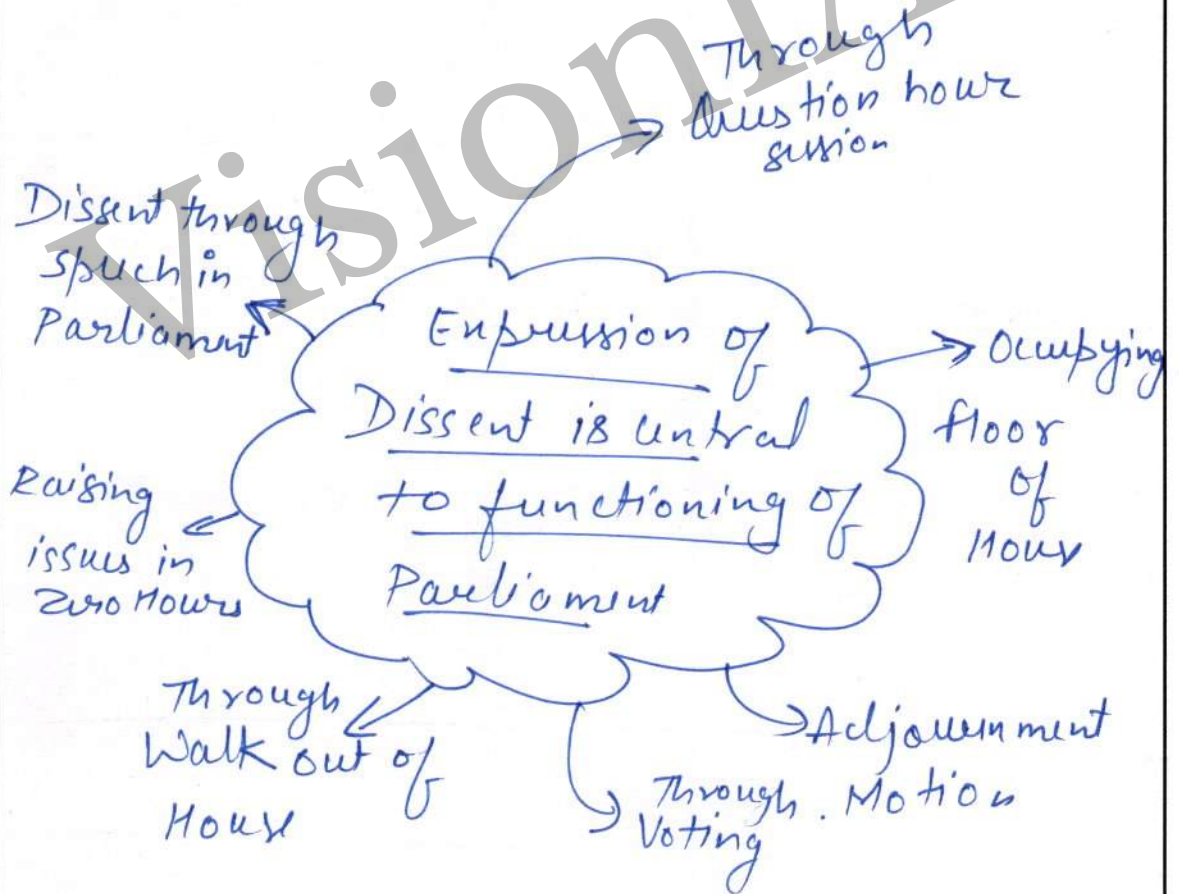 VisionIA
Through
Question hour
session
Dissent through
speech in
Parliament
Expression of
Dissent is central
to functioning of
Parliament
Occupying
floor
of
House
Raising
issues in
Zero Hours
Through
Walk out of
House
Through
Voting
Adjournment
Motion